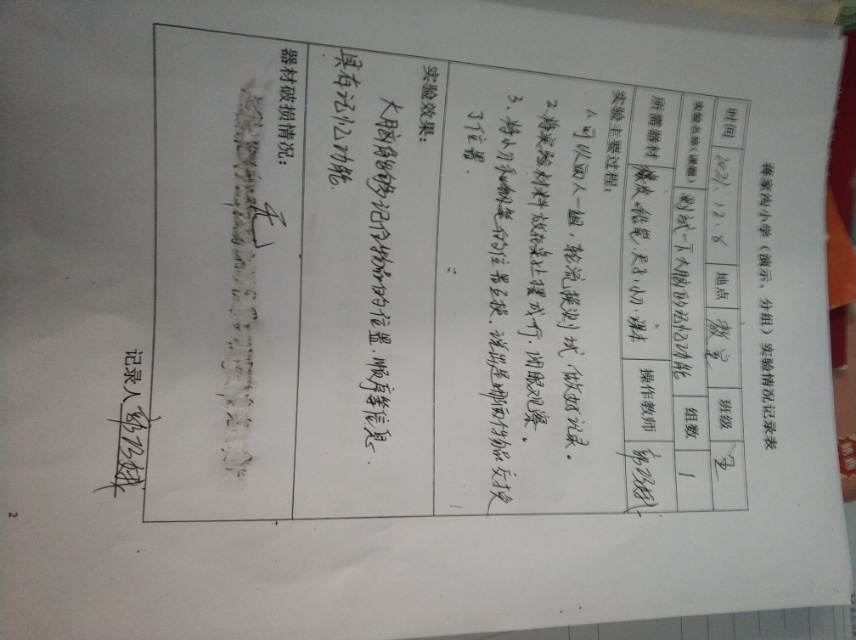 蒋家沟小学（演示、分组）实验情况记录表
时间 2021.12.8 地点 教室 班级 五
实验名称（课题） 测试一下大脑的记忆功能 组数 1
所需器材 橡皮、铅笔、尺子、小刀、课本 操作教师
实验主要过程：
1、可以两人一组，轮流接测试，做好记录。
2、将实验材料放在桌上摆成行，闭眼观察。
3、将小刀和钢笔的位置互换，说出是哪两份物品交换
了位置。
实验效果：
大脑能够记住物品的位置、顺序等信息.
具有记忆功能
器材破损情况：
无
记录人
2